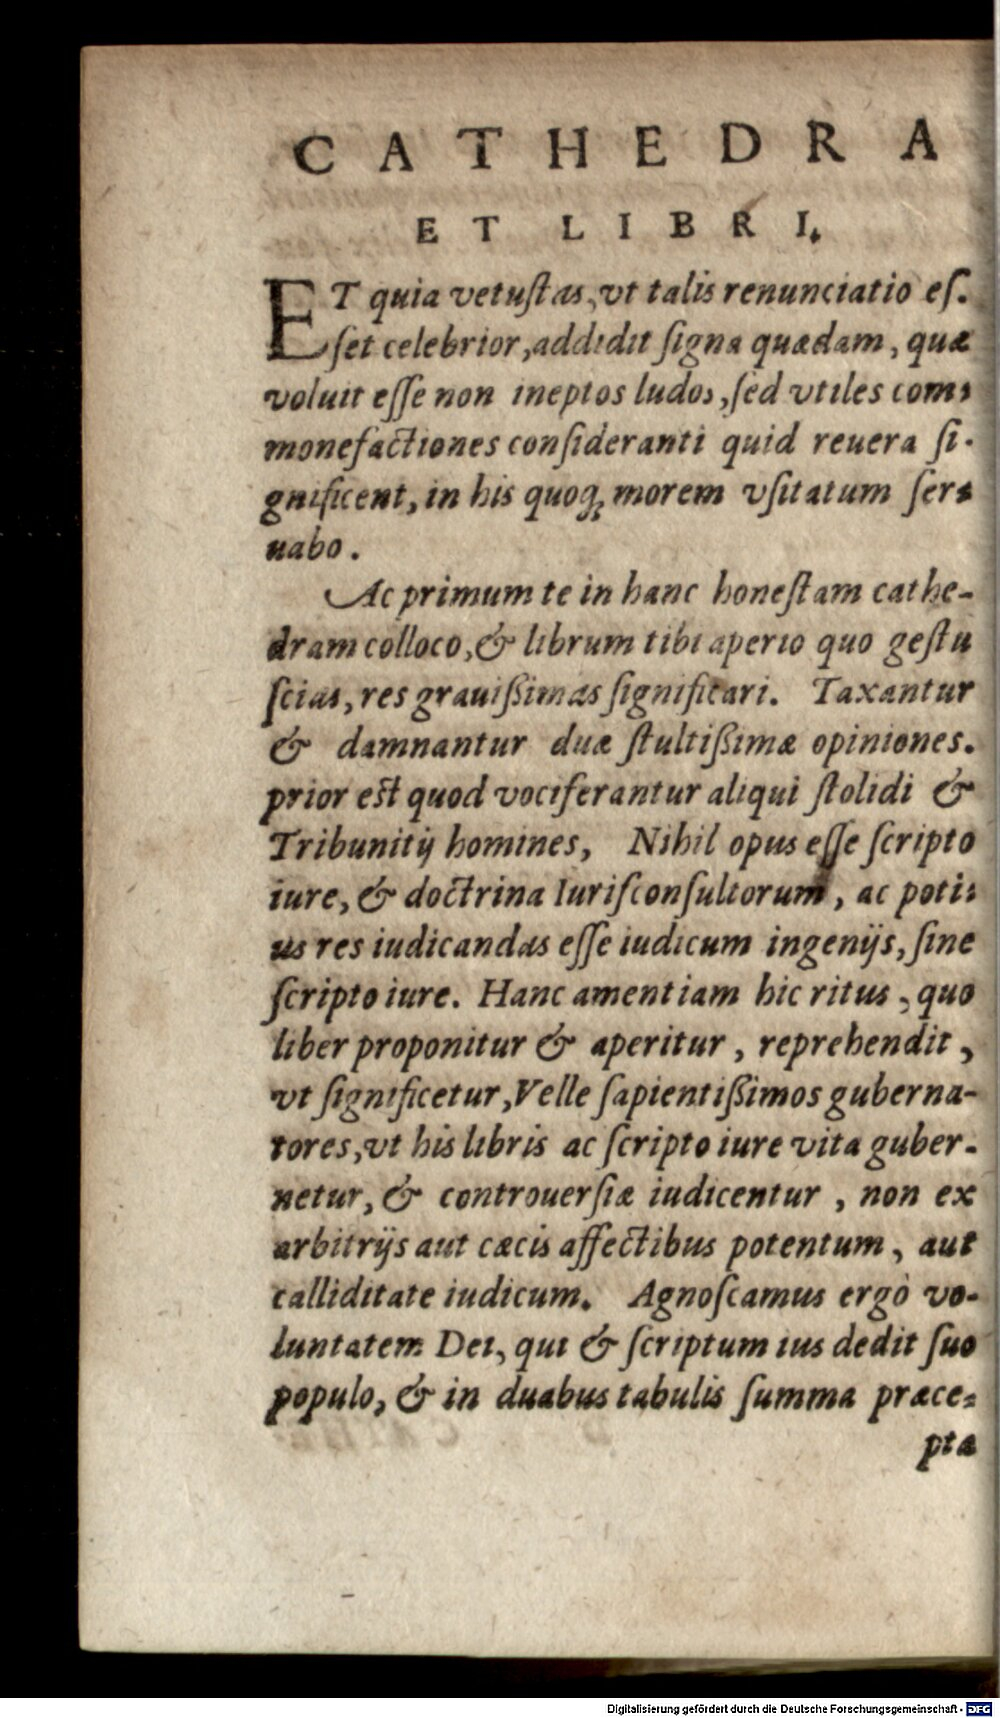 CATHEDRA
ET LIBRI.
ET quia vetuſtas, vt talis renunciatio eſ-
ſet celebrior, addidit ſigna quædam, quæ
voluit eſſe non ineptos ludos, ſed vtiles com-
monefactiones conſideranti quid reuera ſi-
gnificent, in his quoq; morem vſitatum ſer-
uabo.
Ac primum te in hanc honeſtam cathe-
dram colloco, & librum tibi aperio quo geſtu
ſcias, res grauißimas ſignificari. Taxantur
& damnantur duæ ſtultißimæ opiniones.
prior est quod vociferantur aliqui ſtolidi &
Tribunitij homines, Nihil opus eſſe ſcripto
iure, & doctrina Iuriſconſultorum, ac poti-
us res iudicandas eſſe iudicum ingenijs, ſine
ſcripto iure. Hanc amentiam hic ritus, quo
liber proponitur & aperitur, reprehendit,
vt ſignificetur, Velle ſapientißimos guberna-
tores, vt his libris ac ſcripto iure vita guber-
netur, & controuerſiæ iudicentur, non ex
arbitrijs aut cæcis affectibus potentum, aut
calliditate iudicum. Agnoſcamus ergò vo-
luntatem Dei, qui & ſcriptum ius dedit ſuo
populo, & in duabus tabulis ſumma præce-
pta
Digitalisierung gefördert durch die Deutsche Forschungsgemeinschaft - DFG